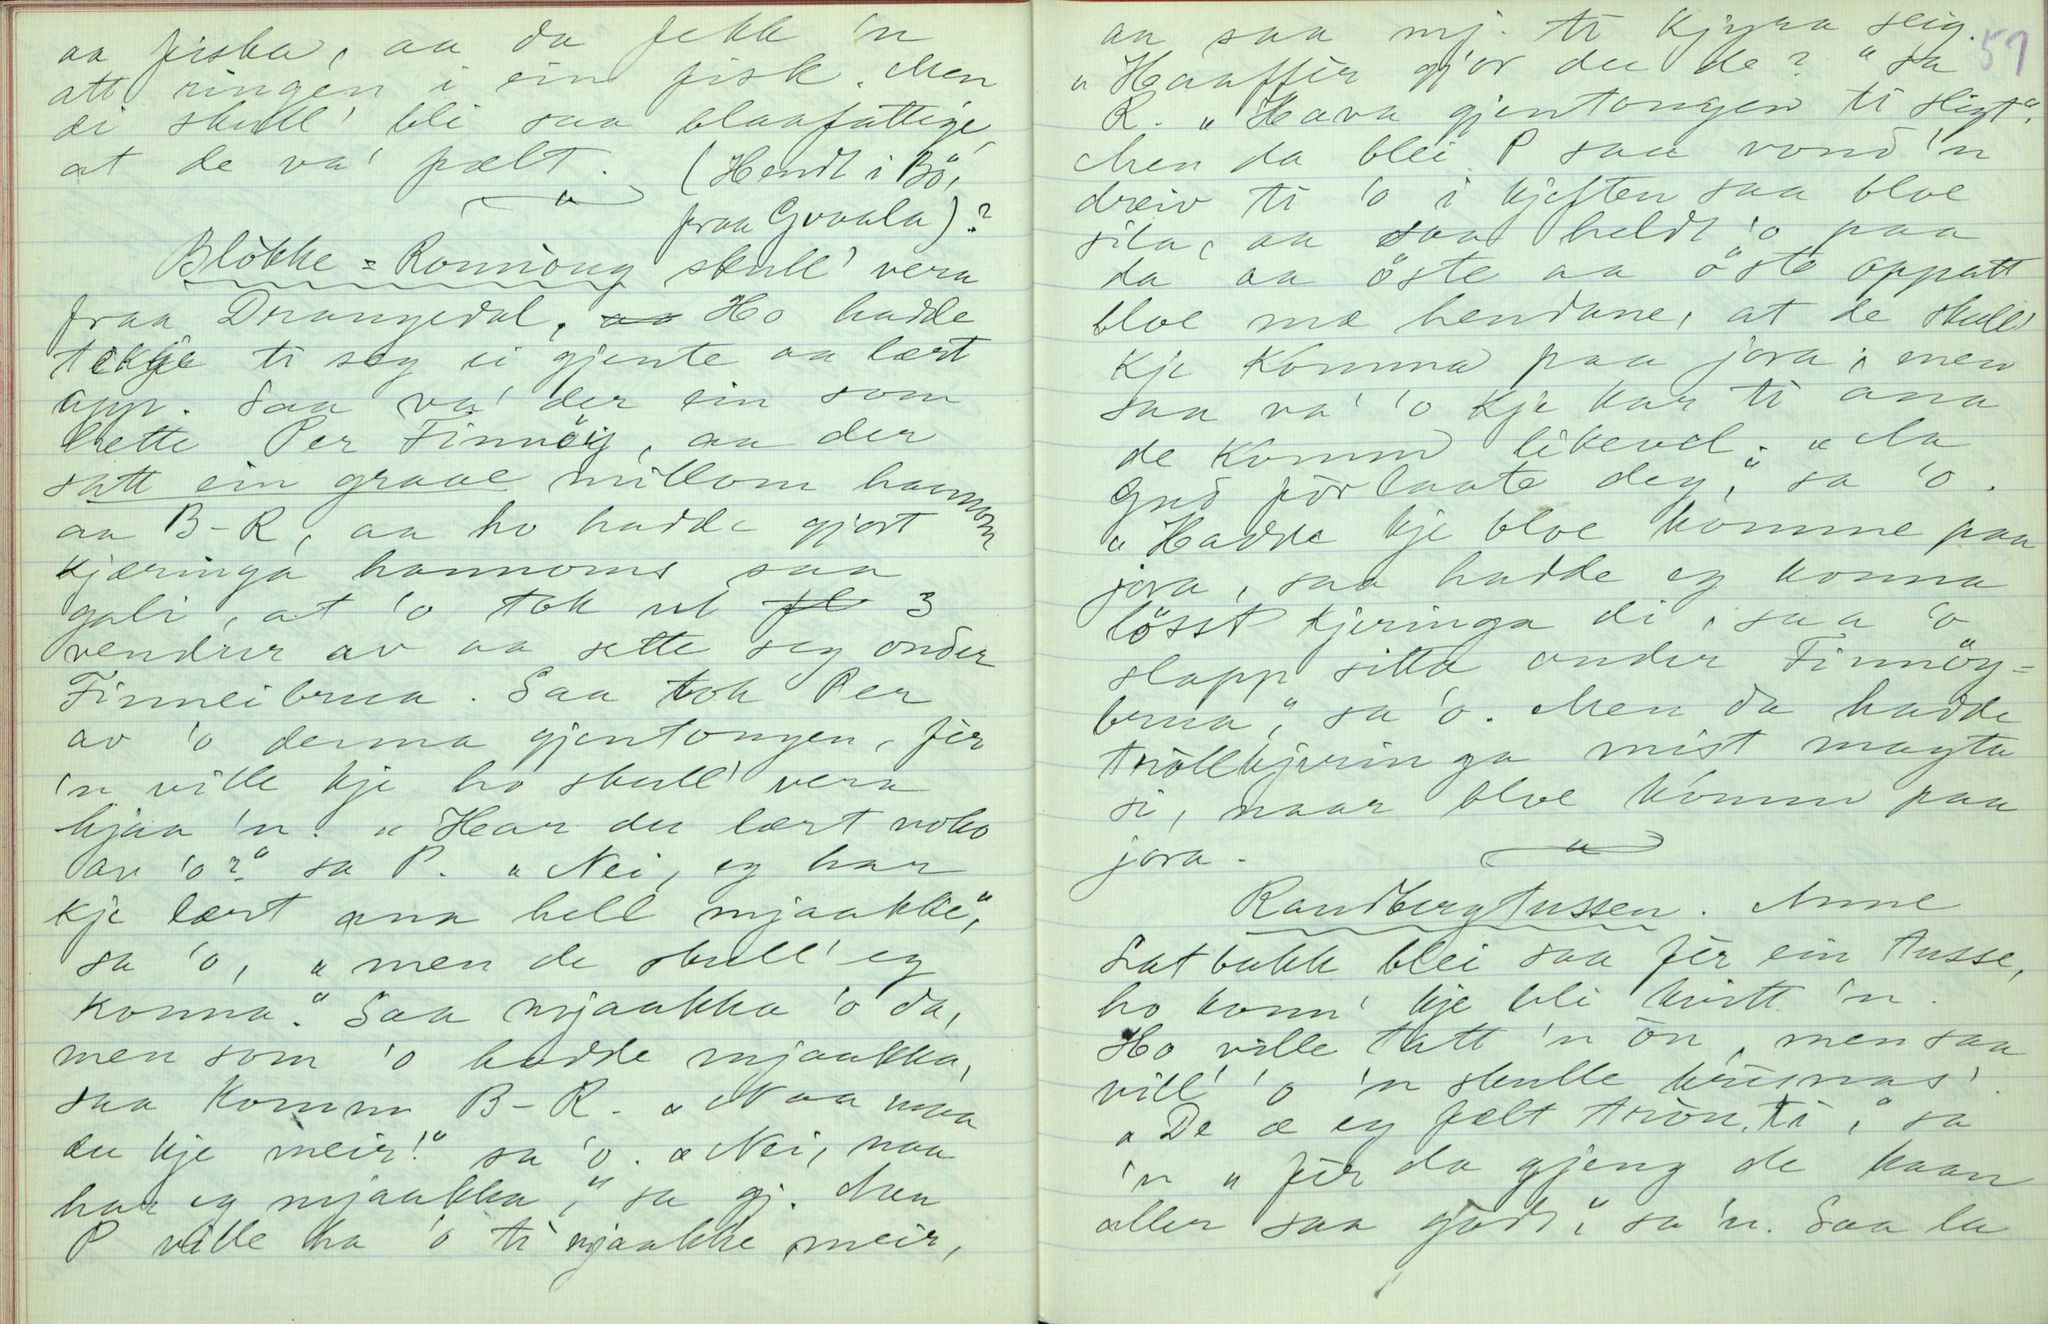 aa fiska, aa da fekk 'n
att ringen i ein fisk. Men
di skull' bli saa blaafattige,
at de va' fælt. (Hendt i Bö,
fraa Gvaala)?
Blökke-Rönnöug skull' vera
fraa Drangedal. Ho hadde
tekje ti seg ei gjente aa lært
opp. Saa va' der ein som
hette Per Finnöy, aa der
satt ein graae millom hannom
aa B-R, aa ho hadde gjort
kjæringa hannoms saa
gali, at 'o tok ut 3
vendur av aa sette seg onder
Finneibrua. Saa tok Per
av 'o denna gjentongen, fèr
'n ville kje ho skull' vera
hjaa 'n. "Har du lært noko
av 'o?" sa P. "Nei, eg har
kje lært ana hell mjaakke",
sa 'o, "men de skull' eg
konna." Saa mjaakka 'o da,
men som 'o hadde mjaakka,
saa komm B-R. "Naa maa
du kje meir!" sa 'o. "Nei, naa
har eg mjaakka," sa gj. Men
P ville ha 'o ti mjaakke meir,
57
aa saa mj. ti kjyra seig.
"Haaffèr gjor du de?" sa
R. "Hava gjentongen ti sligt".
Men da blei P saa vond 'n
dreiv ti 'o i kjeften saa bloe
sila, aa saa heldt 'o paa
da aa öste aa öste oppatt
bloe mæ hendane, at de skull'
kje komma paa jora; men
saa va' 'o kje kar ti ana
de komm likevel. "Na
Gud förlaate deg," sa 'o.
"Hadde kje bloe komme paa
jora, saa hadde eg konna
lösst kjeringa di, saa 'o
slapp sitta onder Finnöy-
brua," sa 'o. Men da hadde
tröllkjeringa mist magta
si, naar bloe komm paa
jora.
Randbergtussen. Anne
Satbakk blei saa fèr ein tusse,
ho konn' kje bli kvitt 'n.
Ho ville tatt 'n òn, men saa
vill' 'o 'n skulle kristnas.
"De æ eg fælt trön ti," sa
'n "fèr da gjeng de kaan
aller saa godt," sa 'n. Saa la